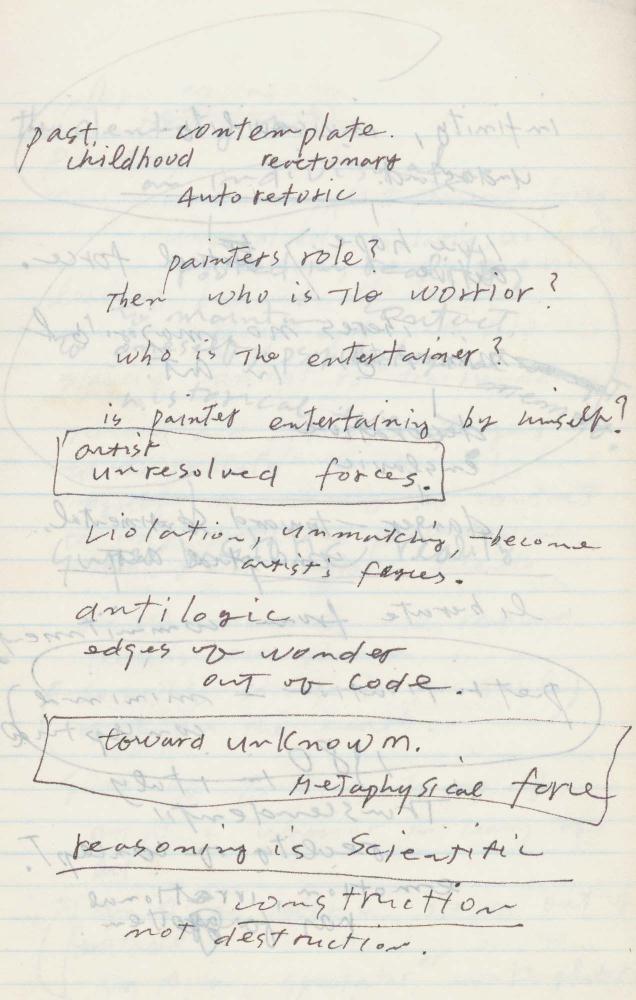 past contemplate.
childhood reactionary
Auto retoric
painters role?
Then who is The worrior?
who is The entertainer?
is painter entertaining by himself?
artist
unresolved forces.
Violation, unmatching, become
artist's forces.
antilogic
edges of wonder
out of code.
toward unknown.
Metaphysical force
reasoning is Scientific
construction
not destruction.